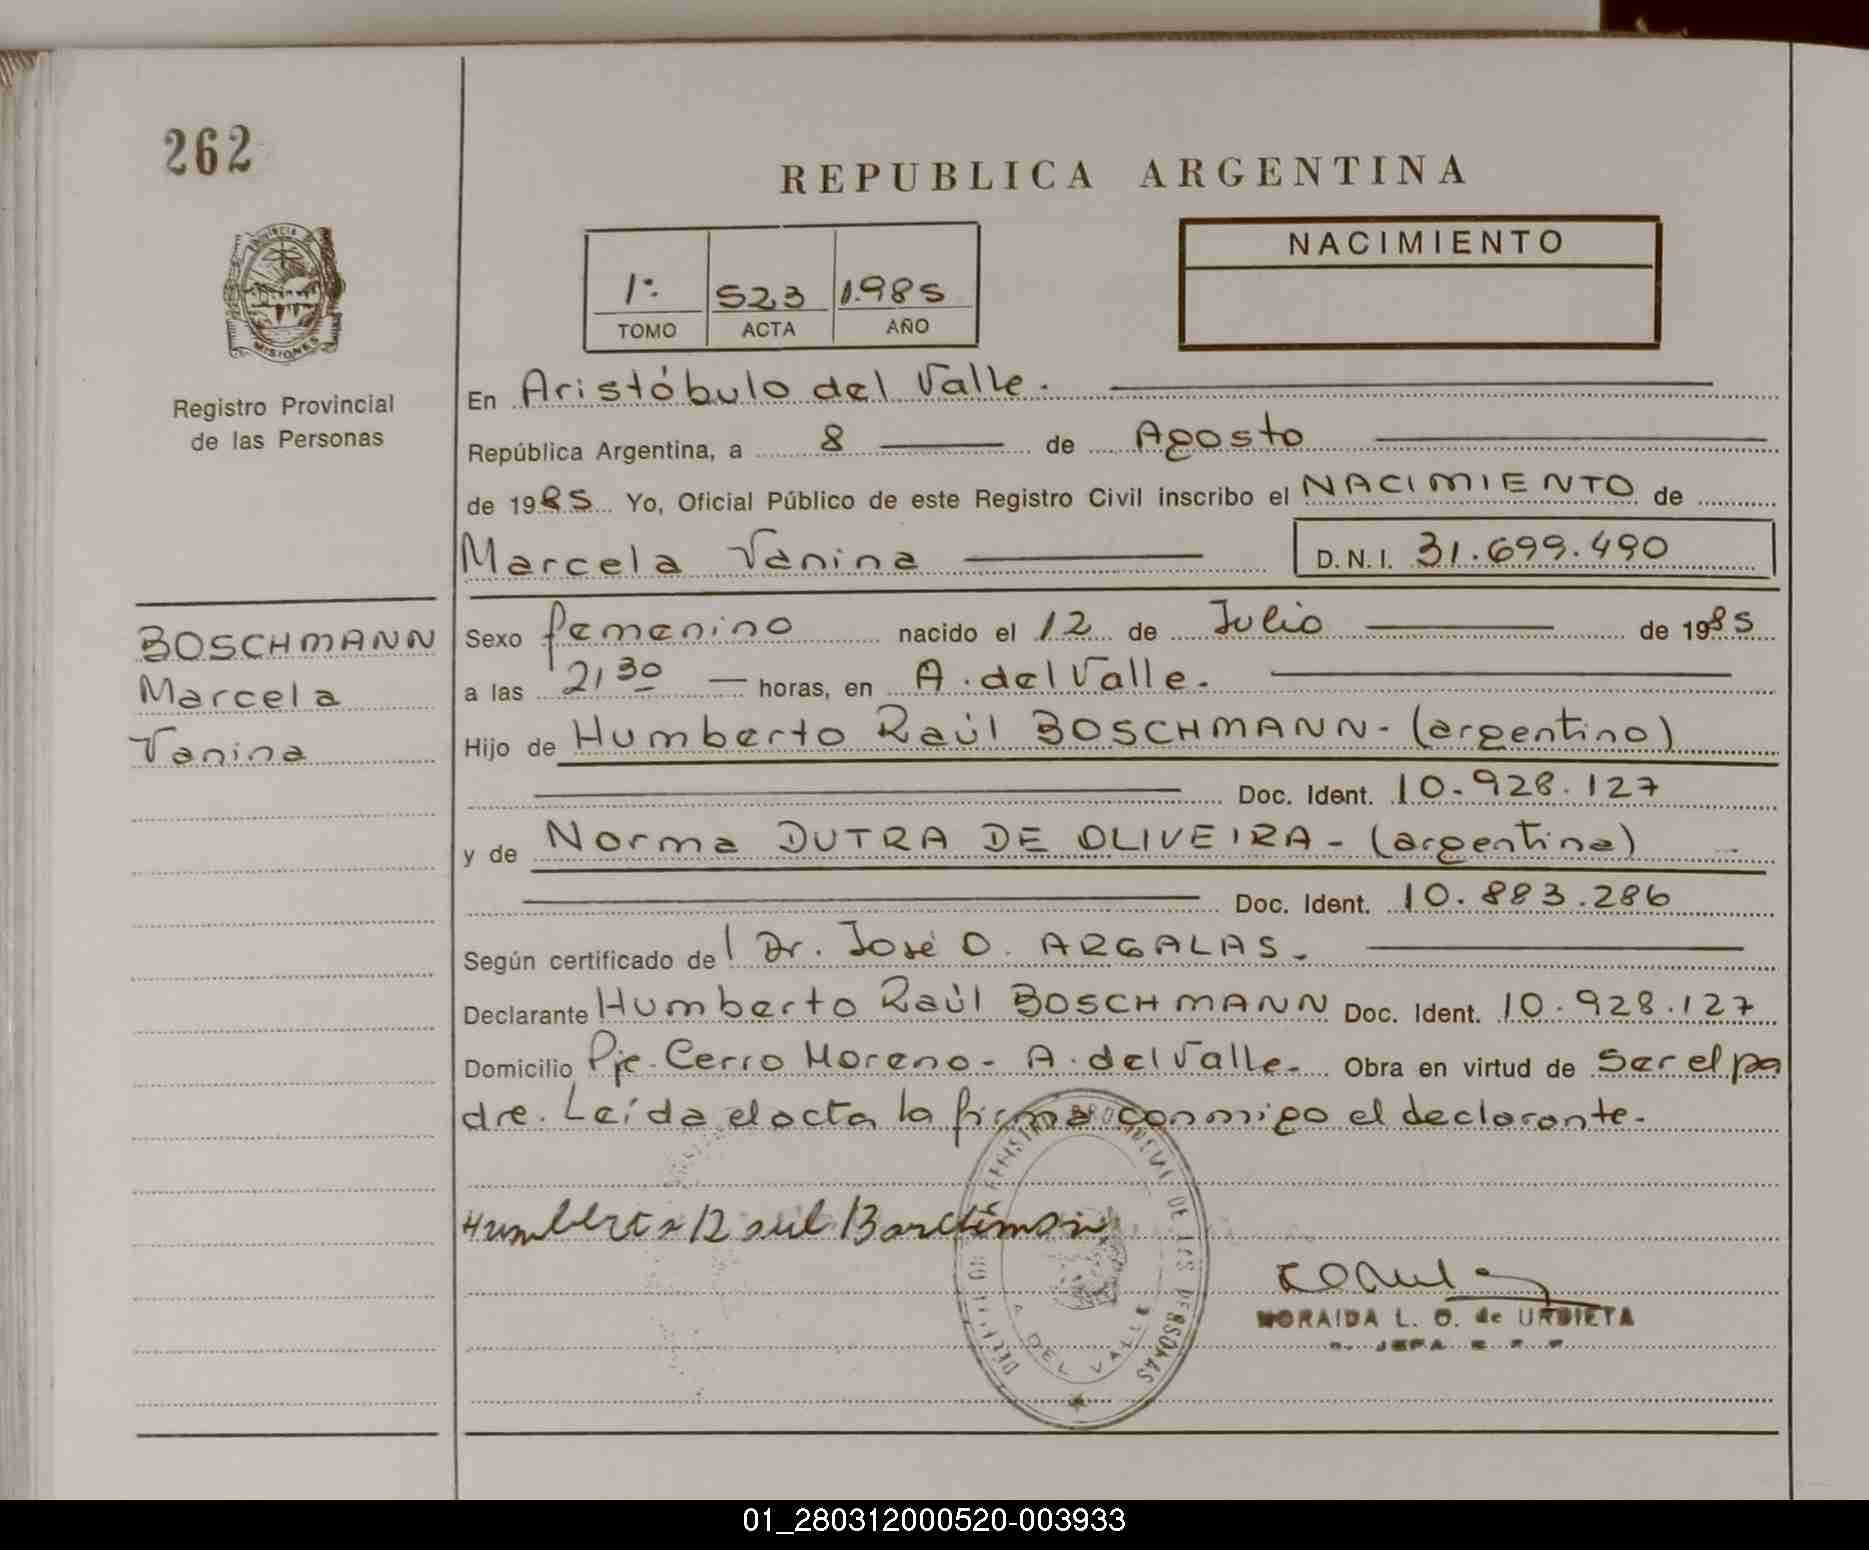 262
REPUBLICA ARGENTINA
PROVINCIA DE
MISIONES
Registro Provincial
de las Personas
1º 523 1.985
TOMO ACTA AÑO
NACIMIENTO
En Aristóbulo del Valle.
República Argentina, a 8 de Agosto
de 1985 Yo, Oficial Público de este Registro Civil inscribo el NACIMIENTO de
Marcela Vanina D.N.I. 31.699.490
BOSCHMANN
Marcela
Vanina
Sexo femenino nacido el 12 de Julio de 1985
a las 21,30 horas, en A. del Valle.
Hijo de Humberto Raúl BOSCHMANN- (argentino)
Doc. Ident. 10.928.127
y de Norma DUTRA DE OLIVEIRA - (argentina)
Doc. Ident. 10.883.286
Según certificado de Dr. José O. ARGALAS.
Declarante Humberto Raúl BOSCHMANN Doc. Ident. 10.928.127
Domicilio Pje. Cerro Moreno - A. del Valle. Obra en virtud de ser el pa
dre. Leída el acta la firma conmigo el declarante.
REGISTRO PROVINCIAL DE LAS PERSONAS
A. DEL VALLE
Humberto Raul
NORAIDA L. O. de URBIETA
JEFA
01_280312000520-003933